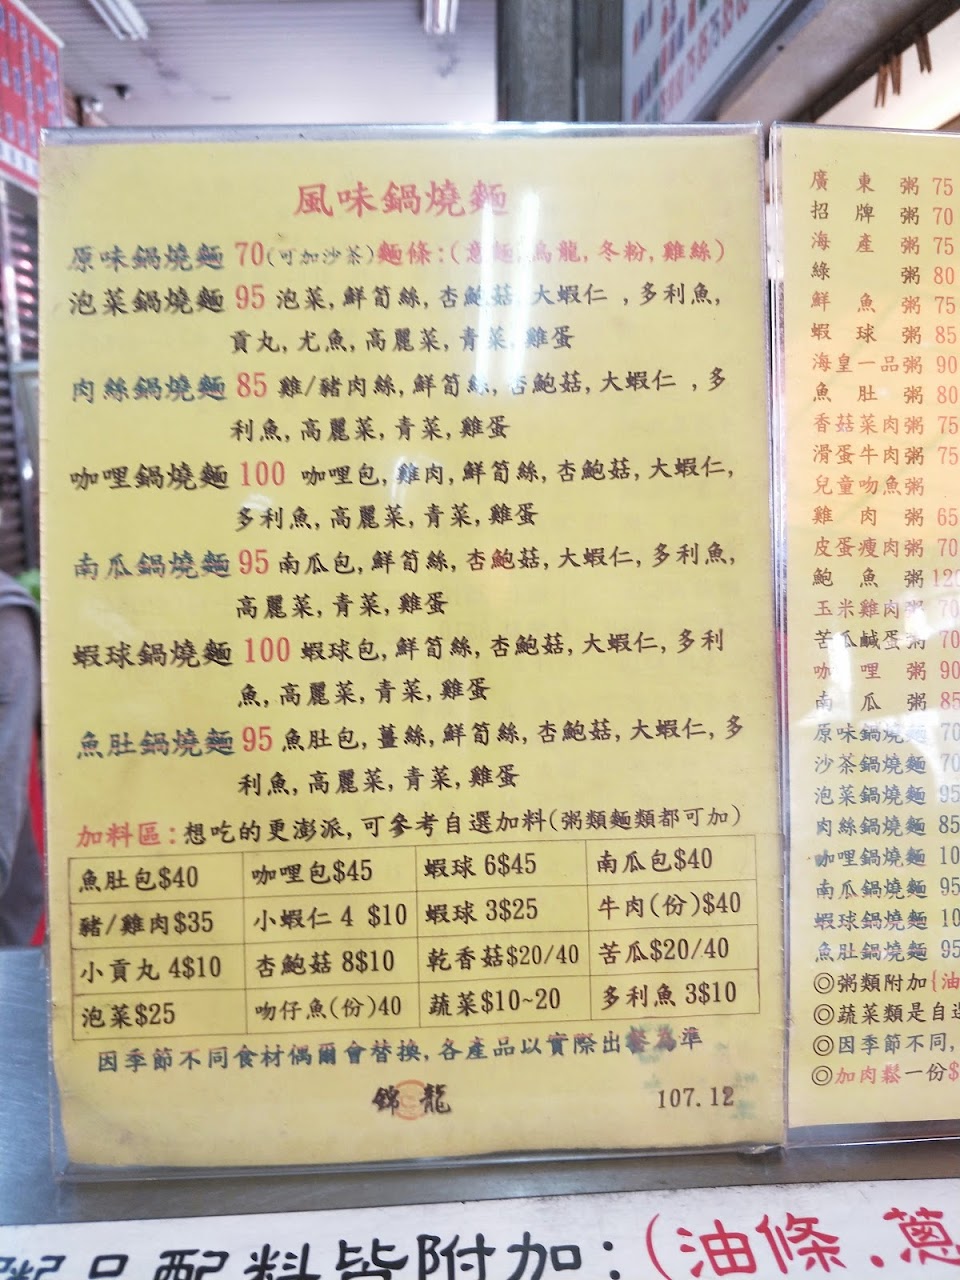 風味鍋燒麵
原味鍋燒麵 70(可加沙茶)麵條:(意麵,烏龍,冬粉,雞絲)
泡菜鍋燒麵 95 泡菜,鮮筍絲,杏鮑菇,大蝦仁 ,多利魚,
貢丸,尤魚,高麗菜,青菜,雞蛋
肉絲鍋燒麵 85 雞/豬肉絲,鮮筍絲,杏鮑菇,大蝦仁 ,多
利魚,高麗菜,青菜,雞蛋
咖哩鍋燒麵 100 咖哩包,雞肉,鮮筍絲,杏鮑菇,大蝦仁,
多利魚,高麗菜,青菜,雞蛋
南瓜鍋燒麵 95 南瓜包,鮮筍絲,杏鮑菇,大蝦仁,多利魚,
高麗菜,青菜,雞蛋
蝦球鍋燒麵 100 蝦球包,鮮筍絲,杏鮑菇,大蝦仁,多利
魚,高麗菜,青菜,雞蛋
魚肚鍋燒麵 95 魚肚包,薑絲,鮮筍絲,杏鮑菇,大蝦仁,多
利魚,高麗菜,青菜,雞蛋
加料區:想吃的更澎派,可參考自選加料(粥類麵類都可加)
魚肚包$40 咖哩包$45 蝦球 6$45 南瓜包$40
豬/雞肉$35 小蝦仁 4 $10 蝦球 3$25 牛肉(份)$40
小貢丸 4$10 杏鮑菇 8$10 乾香菇$20/40 苦瓜$20/40
泡菜$25 吻仔魚(份)40 蔬菜$10~20 多利魚 3$10
因季節不同食材偶爾會替換,各產品以實際出餐為準
錦龍 107.12
廣東粥 75
招牌粥 70
海產粥 75
綠 粥 80
鮮魚粥 75
蝦球粥 85
海皇一品粥 90
魚肚粥 80
香菇菜肉粥 75
滑蛋牛肉粥 75
兒童吻魚粥
雞肉粥 65
皮蛋瘦肉粥 70
鮑魚粥 120
玉米雞肉粥 70
苦瓜鹹蛋粥 70
咖哩粥 90
南瓜粥 85
原味鍋燒麵 70
沙茶鍋燒麵 70
泡菜鍋燒麵 95
肉絲鍋燒麵 85
咖哩鍋燒麵 10
南瓜鍋燒麵 95
蝦球鍋燒麵 10
魚肚鍋燒麵 95
◎粥類附加{油
◎蔬菜類是自
◎因季節不同,
◎加肉鬆一份$
粥品配料皆附加:(油條.蔥